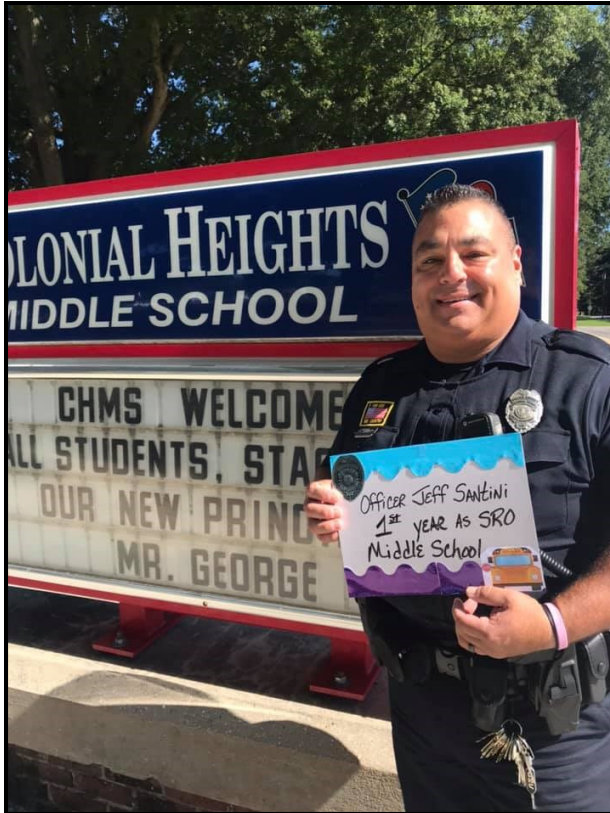 OLONIAL HEIGHTS
MIDDLE SCHOOL
CHMS WELCOME
ALL STUDENTS, STA
OUR NEW PRINC
MR. GEORGE
OFFICER JEFF SANTINI
1st YEAR AS SRO
Middle School